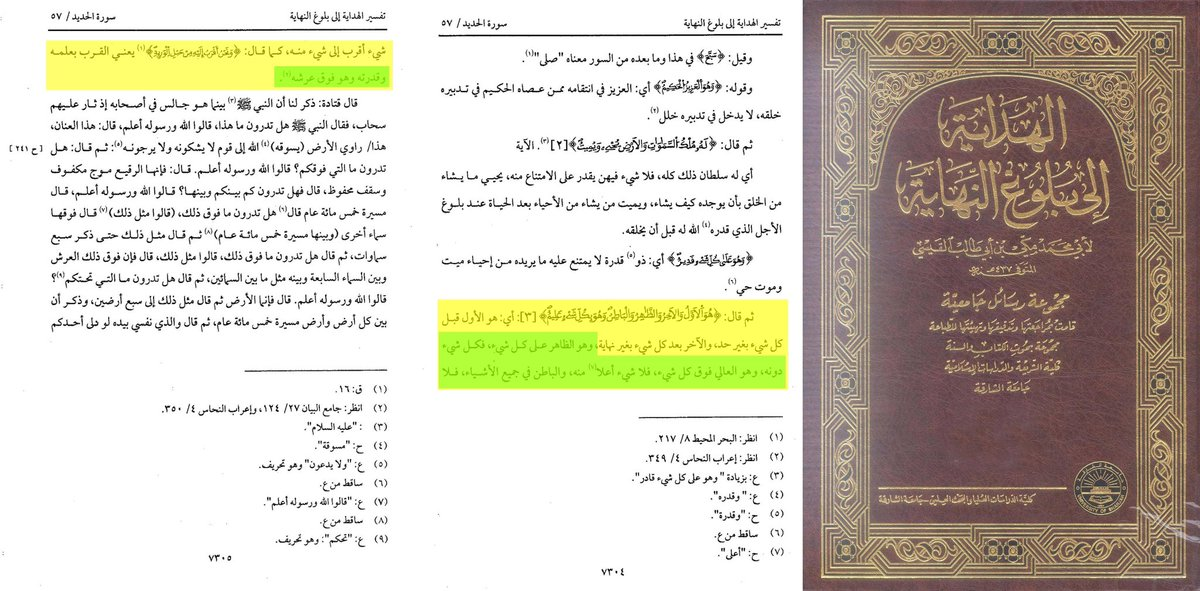 الهداية
إلى بلوغ النهاية
لأبي محمد مكي بن أبي طالب القيسي
المتوفى ٤٣٧هـ
مجموعة رسائل جامعية
قامت بمراجعتها وتدقيقها وتهيئتها للطباعة
مجموعة بحوث الكتاب والسنة
كلية الشريعة والدراسات الإسلامية
جامعة الشارقة
كلية الدراسات العليا والبحث العلمي - جامعة الشارقة
UNIVERSITY OF SHARJAH
تفسير الهداية إلى بلوغ النهاية سورة الحديد/ ٥٧
وقيل: ﴿سَبَّحَ﴾ في هذا وما بعده من السور معناه "صلى"(١).
وقوله: ﴿وَهُوَ ٱلْعَزِيزُ ٱلْحَكِيمُ﴾ أي: العزيز في انتقامه ممن عصاه الحكيم في تدبيره
خلقه، لا يدخل في تدبيره خلل(٢).
ثم قال: ﴿لَهُۥ مُلْكُ ٱلسَّمَٰوَٰتِ وَٱلْأَرْضِ يُحْىِۦ وَيُمِيتُ﴾[٢](٣). الآية
أي له سلطان ذلك كله، فلا شيء فيهن يقدر على الامتناع منه، يحيي ما يشاء
من الخلق بأن يوجده كيف يشاء، ويميت من يشاء من الأحياء بعد الحياة عند بلوغ
الأجل الذي قدره(٤) الله له قبل أن يخلقه.
﴿وَهُوَ عَلَىٰ كُلِّ شَىْءٍ قَدِيرٌ﴾ أي: ذو(٥) قدرة لا يمتنع عليه ما يريده من إحياء ميت
وموت حي(٦).
ثم قال: ﴿هُوَ ٱلْأَوَّلُ وَٱلْءَاخِرُ وَٱلظَّٰهِرُ وَٱلْبَاطِنُ وَهُوَ بِكُلِّ شَىْءٍ عَلِيمٌ﴾ [٣]: أي: هو الأول قبل
كل شيء بغير حد، والآخر بعد كل شيء بغير نهاية، وهو الظاهر على كل شيء، فكل شيء
دونه، وهو العالي فوق كل شيء، فلا شيء أعلا(٧) منه، والباطن في جميع الأشياء، فلا
(١) انظر: البحر المحيط ٨/ ٢١٧.
(٢) انظر: إعراب النحاس ٤/ ٣٤٩.
(٣) ع: بزيادة "وهو على كل شيء قادر".
(٤) ع: "وقدره".
(٥) ح: "وقدرة".
(٦) ساقط من ع.
(٧) ح: "أعلى".
٧٣٠٤
تفسير الهداية إلى بلوغ النهاية سورة الحديد/ ٥٧
شيء أقرب إلى شيء منه، كما قال: ﴿وَنَحْنُ أَقْرَبُ إِلَيْهِ مِنْ حَبْلِ ٱلْوَرِيدِ﴾(١) يعني القرب بعلمه
وقدرته وهو فوق عرشه(٢).
قال قتادة: ذكر لنا أن النبي ﷺ(٣) بينما هو جالس في أصحابه إذ ثار عليهم
سحاب، فقال النبي ﷺ هل تدرون ما هذا، قالوا الله ورسوله أعلم، قال: هذا العنان،
هذا/ راوي الأرض (يسوقه)(٤) الله إلى قوم لا يشكونه ولا يرجونه(٥): ثم قال: هل [ح ٢٤١]
تدرون ما التي فوقكم؟ قالوا الله ورسوله أعلم. قال: فإنها الرقيع موج مكفوف
وسقف محفوظ، قال فهل تدرون كم بينكم وبينها؟ قالوا الله ورسوله أعلم، قال
مسيرة خمس مائة عام قال(٦) هل تدرون ما فوق ذلك، (قالوا مثل ذلك)(٧) قال فوقها
سماء أخرى (وبينها مسيرة خمس مائة عام)(٨) ثم قال مثل ذلك حتى ذكر سبع
سماوات، ثم قال هل تدرون ما فوق ذلك، قالوا مثل ذلك، قال فإن فوق ذلك العرش
وبين السماء السابعة وبينه مثل ما بين السمائين، ثم قال هل تدرون ما التي تحتكم(٩)؟
قالوا الله ورسوله أعلم. قال فإنها الأرض ثم قال مثل ذلك إلى سبع أرضين، وذكر أن
بين كل أرض وأرض مسيرة خمس مائة عام، ثم قال والذي نفسي بيده لو دلى أحدكم
(١) ق: ١٦.
(٢) انظر: جامع البيان ٢٧/ ١٢٤، وإعراب النحاس ٤/ ٣٥٠.
(٣) : "عليه السلام".
(٤) ح: "مسوقة".
(٥) ع: "ولا يدعون" وهو تحريف.
(٦) ساقط من ع.
(٧) ع: "قالوا الله ورسوله أعلم".
(٨) ساقط من ع.
(٩) ع: "تحكم": وهو تحريف.
٧٣٠٥